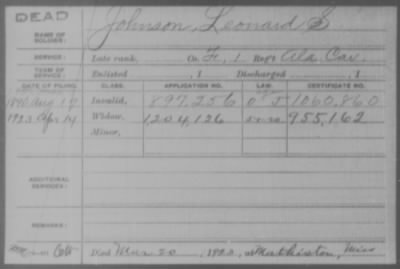 DEAD
NAME OF SOLDIER:
Johnson, Leonard S
SERVICE:
Late rank, Co. F, 1 Reg't Ala Cav.
TERM OF SERVICE:
Enlisted , 1 Discharged , 1
DATE OF FILING. CLASS. APPLICATION NO. LAW. CERTIFICATE NO.
1890 Aug 19 Invalid, 897,256 1060,860
1923 Apr 14 Widow, 1,204,126 955,162
Minor,
ADDITIONAL SERVICES:
REMARKS:
Died Mar 20, 1923, at Mathiston, Miss